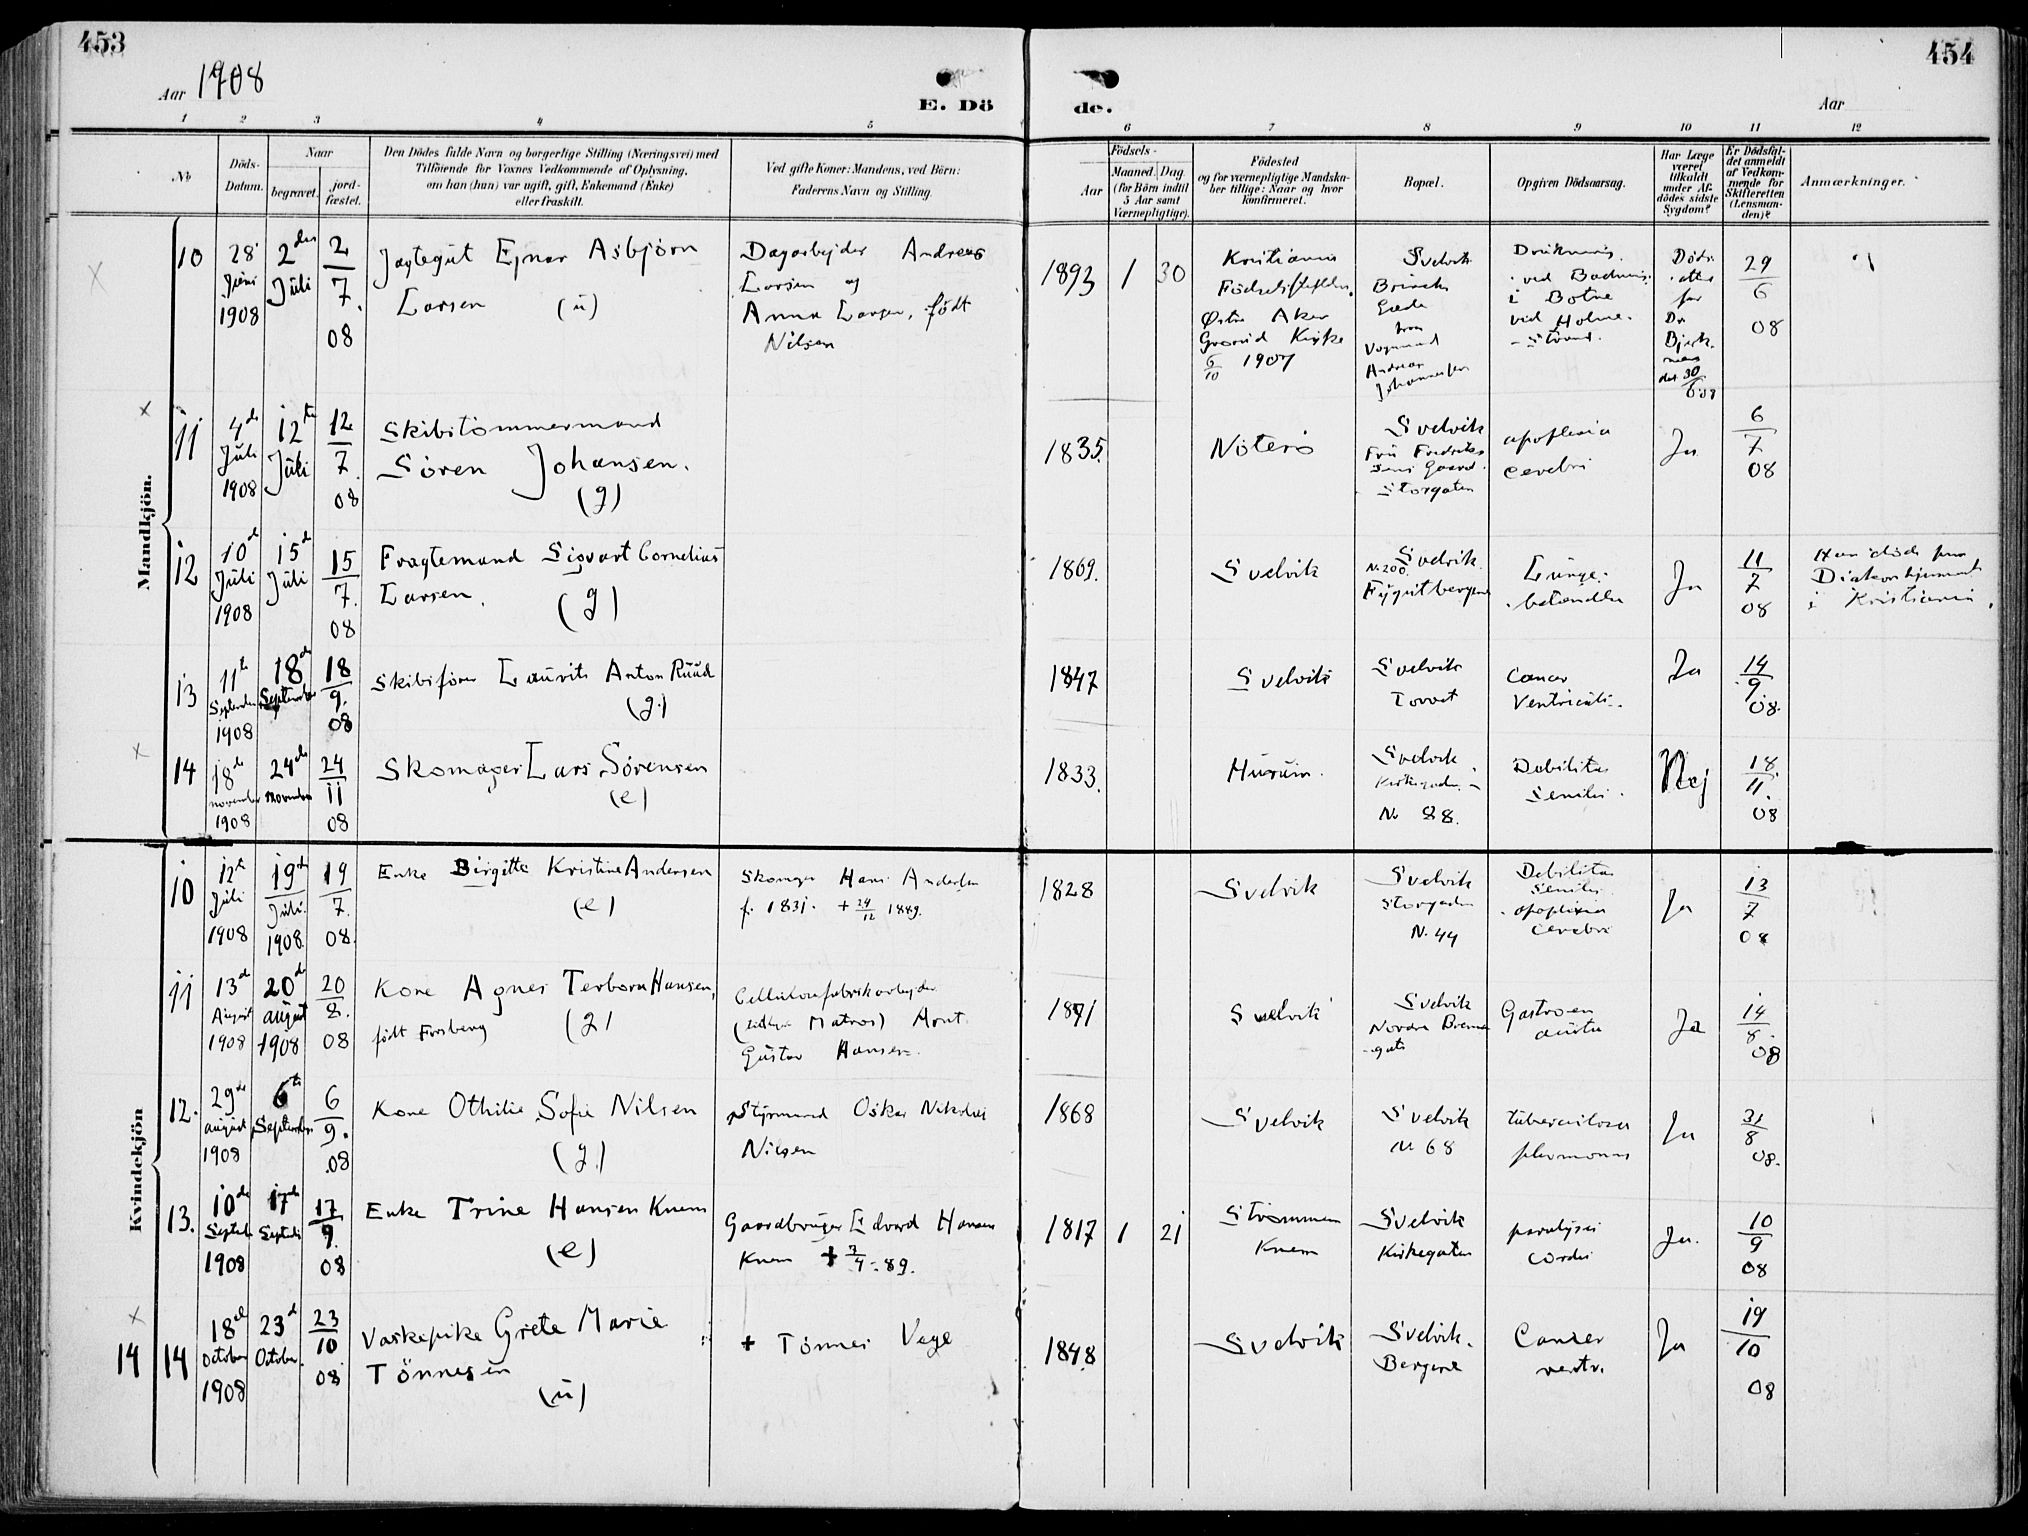 453
Aar 1908
E. Dö
1 2 3 4 5
No
Döds-
Datum.
Naar
begravet.
jord-
fæstet.
Den Dödes fulde Navn og borgerlige Stilling (Næringsvei) med
Tilföiende for Voxnes Vedkommende af Oplysning,
om han (hun) var ugift, gift, Enkemand (Enke)
eller fraskilt.
Ved gifte Koner: Mandens, ved Börn:
Faderens Navn og Stilling.
Mandkjön.
10
28
Juni
1908
2den
Juli
2
7.
08
Jagtegut Ejnar Asbjørn
Larsen (u)
Dagarbejder Andreas
Larsen og
Anna Larsen, født
Nilsen
11
4de
Juli
1908
12te
Juli
12
7.
08
Skibstømmermand
Søren Johansen.
(g)
12
10d
Juli
1908
15d
Juli
15
7.
08
Fragtemand Sigvart Cornelius
Larsen. (g)
13
11te
September
1908
18de
September
18
9.
08
Skibsfører Laurits Anton Ruud
(g.)
14
18de
november
1908
24de
November
24
11
08
Skomager Lars Sørensen
(e)
Kvindekjön
10
12te
Juli
1908
19d
Juli.
1908.
19
7.
08.
Enke Birgitte Kristine Andersen
(e)
Skomager Hans Andersen
f. 1831. + 29/12 1889.
11
13d
August
1908
20d
august
1908
20
8.
08
Kone Agnes Terbora Hansen,
født Forsberg (g)
Cellulosefabrikarbejder
Matros)
Gustav Hansen.
12.
29de
august
1908
6te
September
6
9.
08
Kone Othilie Sofie Nilsen
(g.)
Styrmand Oskar Nikolai
Nilsen
13.
10de
Septcmbr
1908
17de
Septbr
17
9.
08
Enke Trine Hansen Knem
(e)
Gaardbruger Edvard Hansen
Knem + 3/4-89.
14 14
18de
October
1908
23d
October.
23
10
08
Vaskepike Grete Marie
Tönnesen
(u)
+ Tönnes Vege
454
de.
Aar
6 7 8 9 10 11 12
Födsels-
Aar
Maaned. Dag.
(for Börn indtil
5 Aar samt
Værnepligtige).
Födested
og for værnepligtige Mandska-
ber tillige: Naar og hvor
konfirmeret.
Bopæl.
Opgiven Dödsaarsag.
Har Læge
været
tilkaldt
under Af-
dödes sidste
Sygdom?
Er Dödsfal-
det anmeldt
af Vedkom-
mende for
Skifteretten
(Lensman-
den)?
Anmærkninger.
1893 1 30
Kristiania
Fødselsstiftelse.
Østre Aker
Grorud Kirke
6/10 1907
Svelvik
Andreas
Johannesen
Druknings
ved Badning
i Botne
ved Holme-
-strand.
Døds-
attest
for
Dr
Bjerk-
den 30
6 08
29
6
08
1835.
Nøterø
Svelvik
Fru Fredriks
Gaard.
Storgaten
apoplexia
cerebri
Ja
6
7
08
1869.
Svelvik
Svelvik
N. 200.
Lunge-
betendelse
Ja
11
7
08
Han døde paa
Diakonhjemmet
i Kristiania.
1847
Svelvik
Svelvik
Torvet
Cancer
Ventriculi.
Ja
14
9
08.
1833.
Husum.
Svelvik.
Kirkegaden
No 88.
Debilitas
Senilis.
Nej
18.
11.
08
1828
Svelvik
Svelvik
Storgaden
N. 44
Debilitas
Senilis
apoplexia
cerebri
Ja
13
7
08
1871
Svelvik
Svelvik
Nordre Brenne-
-gate
Gastroen
Ja
14
8.
08
1868
Svelvik
Svelvik
No 68
tuberculosa
pulmonum
Ja
31
8
08.
1817 1 21
Strømmen
Knem
Svelvik
Kirkegaten
paralysis
cordis
Ja.
10
9
08
1848
Svelvik
Svelvik.
Bergene
Cancer
ventr.
Ja
19
10
08